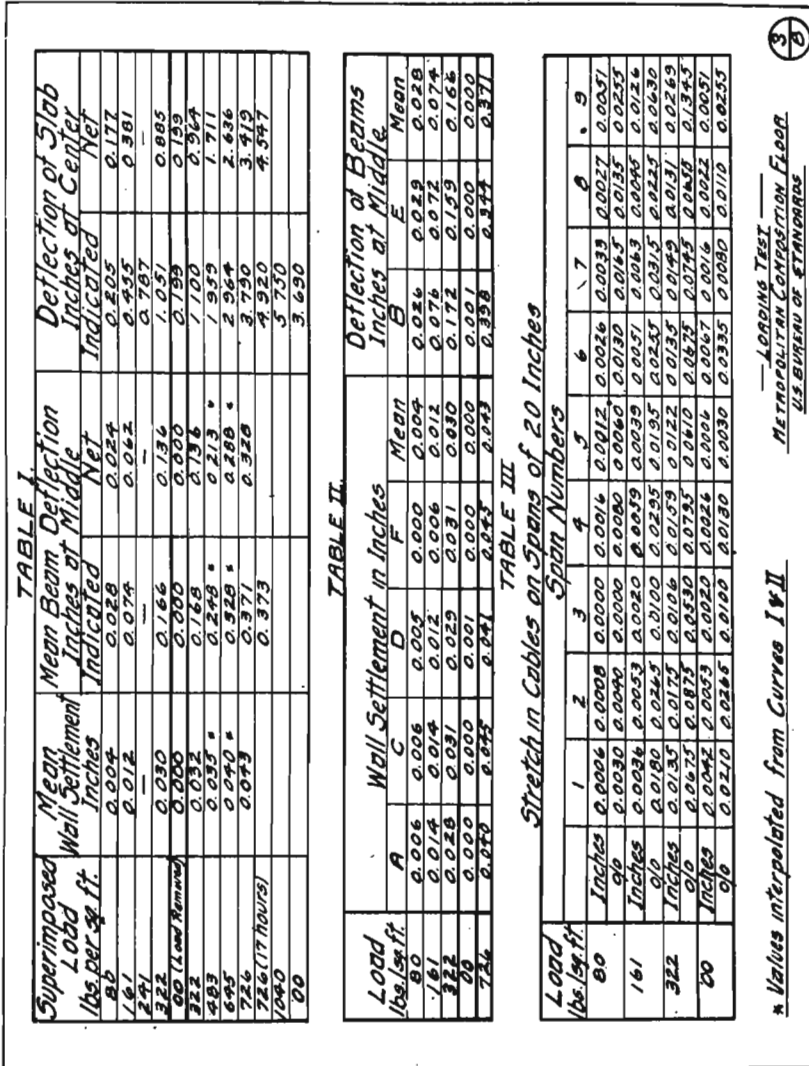 TABLE I.
Superimposed Load lbs. per sq. ft. | Mean Wall Settlement Inches | Mean Beam Deflection Inches at Middle | Deflection of Slab Inches at Center
Indicated | Net | Indicated | Net
80 | 0.004 | 0.028 | 0.024 | 0.205 | 0.177
161 | 0.012 | 0.074 | 0.062 | 0.455 | 0.381
241 | — | — | — | 0.787 | —
322 | 0.030 | 0.166 | 0.136 | 1.051 | 0.885
00 (Load Removed) | 0.000 | 0.000 | 0.000 | 0.199 | 0.199
322 | 0.032 | 0.168 | 0.136 | 1.100 | 0.964
483 | 0.035 * | 0.248 * | 0.213 * | 1 959 | 1.711
645 | 0 040 * | 0.328 * | 0.288 * | 2 964 | 2.636
726 | 0.043 | 0.371 | 0.328 | 3.790 | 3.419
726 (17 hours) | 0.373 | 4.920 | 4.547
1040 | 5 750
00 | 3.690
TABLE II.
Load lbs./sq.ft. | Wall Settlement in Inches | Deflection of Beams Inches at Middle
A | C | D | F | Mean | B | E | Mean
80 | 0.006 | 0.006 | 0.005 | 0.000 | 0.004 | 0.026 | 0.029 | 0.028
161 | 0.014 | 0.014 | 0.012 | 0.006 | 0.012 | 0.076 | 0.072 | 0.074
322 | 0.028 | 0.031 | 0.029 | 0.031 | 0.030 | 0.172 | 0.159 | 0.166
00 | 0.000 | 0.000 | 0.001 | 0.000 | 0.000 | 0.001 | 0.000 | 0.000
726 | 0.040 | 0.045 | 0.041 | 0.045 | 0.043 | 0.398 | 0.344 | 0.371
TABLE III
Stretch in Cables on Spans of 20 Inches
Load lbs./sq.ft. | Span Numbers
1 | 2 | 3 | 4 | 5 | 6 | 7 | 8 | 9
80 | Inches | 0.0006 | 0.0008 | 0.0000 | 0.0016 | 0.0012 | 0.0026 | 0.0033 | 0.0027 | 0.0051
o/o | 0.0030 | 0.0040 | 0.0000 | 0.0080 | 0.0060 | 0.0130 | 0.0165 | 0.0135 | 0.0255
161 | Inches | 0.0036 | 0.0053 | 0.0020 | 0.0059 | 0.0039 | 0.0051 | 0.0063 | 0.0045 | 0.0126
o/o | 0.0180 | 0.0265 | 0.0100 | 0.0295 | 0.0195 | 0.0255 | 0.0315 | 0.0225 | 0.0630
322 | Inches | 0.0135 | 0.0175 | 0.0106 | 0.0159 | 0.0122 | 0.0135 | 0.0149 | 0.0131 | 0.0269
o/o | 0.0675 | 0.0875 | 0.0530 | 0.0795 | 0.0610 | 0.0675 | 0.0745 | 0.0655 | 0.1345
00 | Inches | 0.0042 | 0.0053 | 0.0020 | 0.0026 | 0.0006 | 0.0067 | 0.0016 | 0.0022 | 0.0051
o/o | 0.0210 | 0.0265 | 0.0100 | 0.0130 | 0.0030 | 0.0335 | 0.0080 | 0.0110 | 0.0255
* Values interpolated from Curves I & II
LOADING TEST
METROPOLITAN COMPOSITION FLOOR
U.S. BUREAU OF STANDARDS
3
8